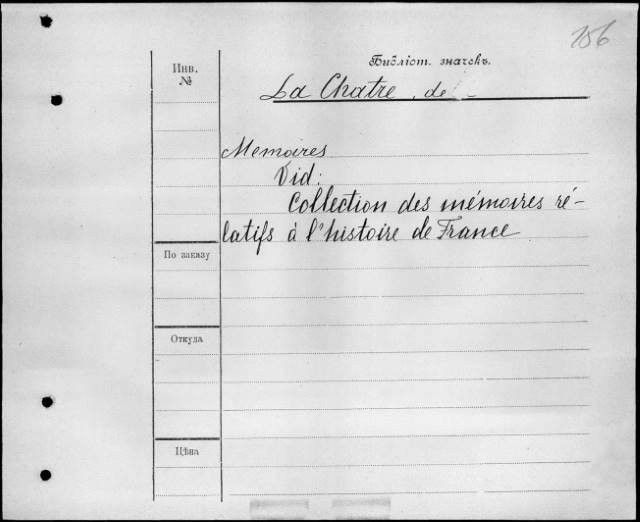 156
Библіот. значекъ.
Инв.
№
La Chatre, de
Memoires
Vid:
Collection des mémoires ré-
latifs à l'histoire de France
По заказу
Откуда
Цѣна